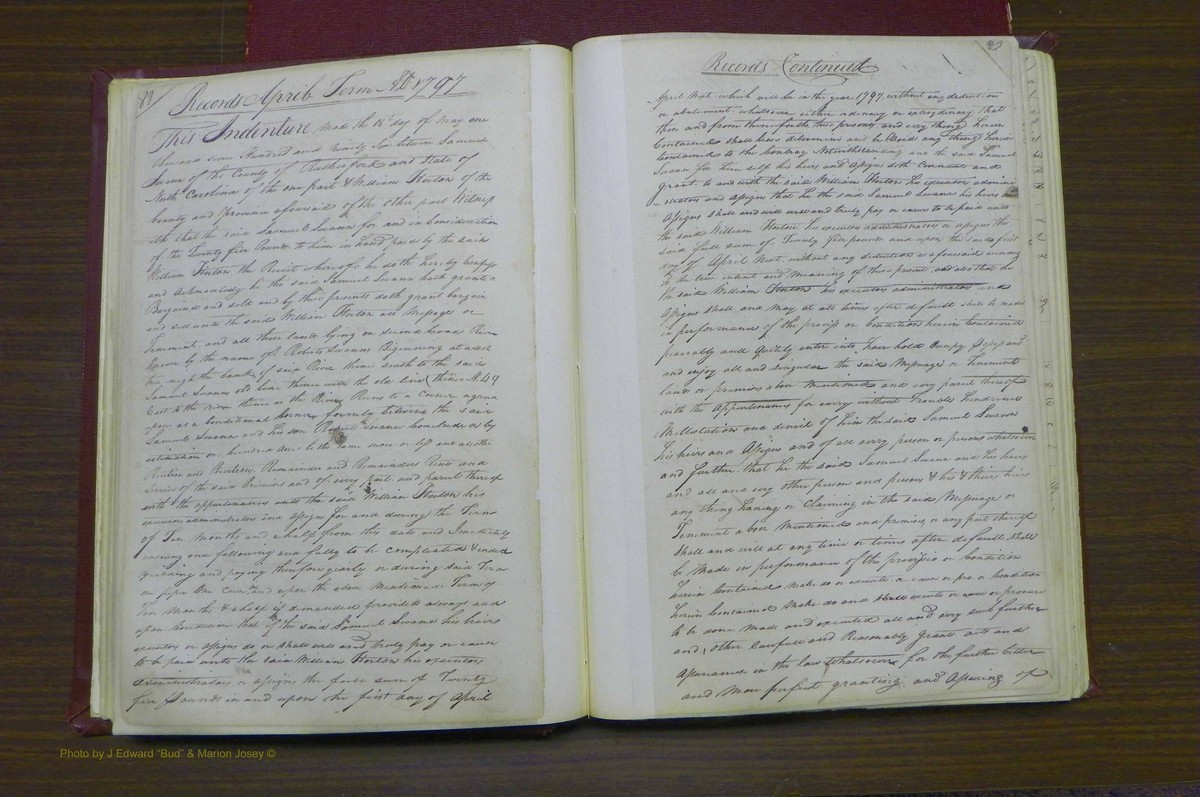 Records April Term AD 1797
This Indenture made the 18th day of May one
thousand seven Hundred and ninety Six between Samuel
Swann of the County of Rutherford and State of
North Carolina of the one part & William Horton of the
County and Province aforesaid of the other part Witness
eth that the said Samuel Swann for and in Consideration
of the Twenty five Pounds to him in hand paid by the said
William Horton the Receit whereof he doth hereby
and acknowledg he the said Samuel Swann hath granted
Bargand and Sold and by these presents doth grant bargain
and sell unto the said William Horton all Mesage or
Tenement and all those lands lying on Second broad River
known by the name of Roberts Swanns Beginning at a
tree nigh the bank of said River thence South to the said
Samuel Swanns old line thence with the old line thence N. 49
East to the River thence as the River Runs to a Corner agreed
upon as a Conditional Corner formely between the said
Samuel Swann and his son Robert Swann bounded as by
estimation on hundred Acres be the same more or less and all the
Revertion and Revertions Remainder and Remainders Rents and
of the said Premises and of every part and parcel thereof
with the appertanances unto the said William Horton his
administrators and assigns for and during the Term
of Ten Months and a half from this date and Imediately
ensuing and following and fully to be compleated & ended
and paying therefore yearly or during said Term
Corn and upon the above Mentioned Term of
Ten Months & a half if demanded provided always and
upon Condition that if the said Samuel Swann his heirs
executors or assigns do or shall well and truly pay or cause
to be paid unto the said William Horton his executors
administrators or assigns the full sum of Twenty
five Pounds in and upon the first day of April
Records Continued
April Next which will be in the year 1797 without any deduction
or abatement whatsoever either ordinary or extrordinary that
then and from thenceforth these presents and every thing herein
Contained shall cease determine and be Void any thing herein
Contained to the Contrary Notwithstanding and the said Samuel
Swann for him self his heirs and assigns doth Covenant and
grant to and with the said William Horton his executors admini
strators and assigns that he the said Samuel Swann his heirs
Assigns shall and will well and truly pay or cause to be paid unto
the said William Horton his executors administrators or assigns the
said full sum of Twenty five pounds and upon the said first
day of April Next without any deduction as aforesaid
to the true intent and Meaning of these present and also that he
the said William Horton his executors administrators and
Assigns shall and May at all times after default shall be made
in performance of the proviso or Condition herein Contained
peacably and quietly enter into have hold Occupy Possess
and enjoy all and Singular the said Mesage or Tenements
lands or premises above Mentioned and every parcel thereof
with the Appurtenances for every without Trouble hindrence
Mollestation and denial of him the said Samuel Swann
his heirs and Assigns and of all every person or persons whatsoever
and further that he the said Samuel Swann and his heirs
and all and every other person and persons & his & theirs heirs
any thing having or Claiming in the said Mesuage or
Tenement above Mentioned and premises or any part thereof
Shall and will at any time or times after default shall
be Made in performance of the proviso or Condition
herein Contained make do or execute or cause or pro or Condition
herein Contained Make do and shall execute or cause or procure
to be done Made and executed all and every such further
and other lawfull and Reasonable grants acts and
Assurances in the law whatsoever for the further better
and More perfect granting and Assuring of
Photo by J Edward "Bud" & Marion Josey ©